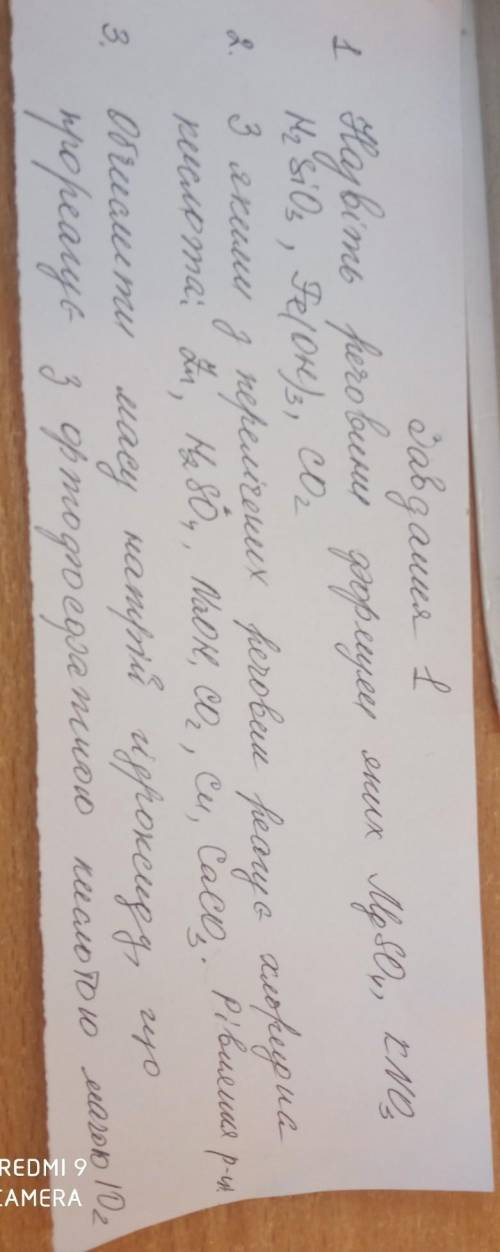 Завдання 1
1 Назвіть речовини формули яких MgSO₄, KNO₃
H₂SiO₃, Fe(OH)₃, CO₂
2. З якими з перелічених речовин реагує хлоридна
кислота: Zn, H₂SO₄, NaOH, CO₂, Cu, CaCO₃. Рівняння р-ці
3. Обчислити масу натрій гідроксиду, що
прореагує з ортофосфатною кислотою масою 10г
REDMI 9
CAMERA